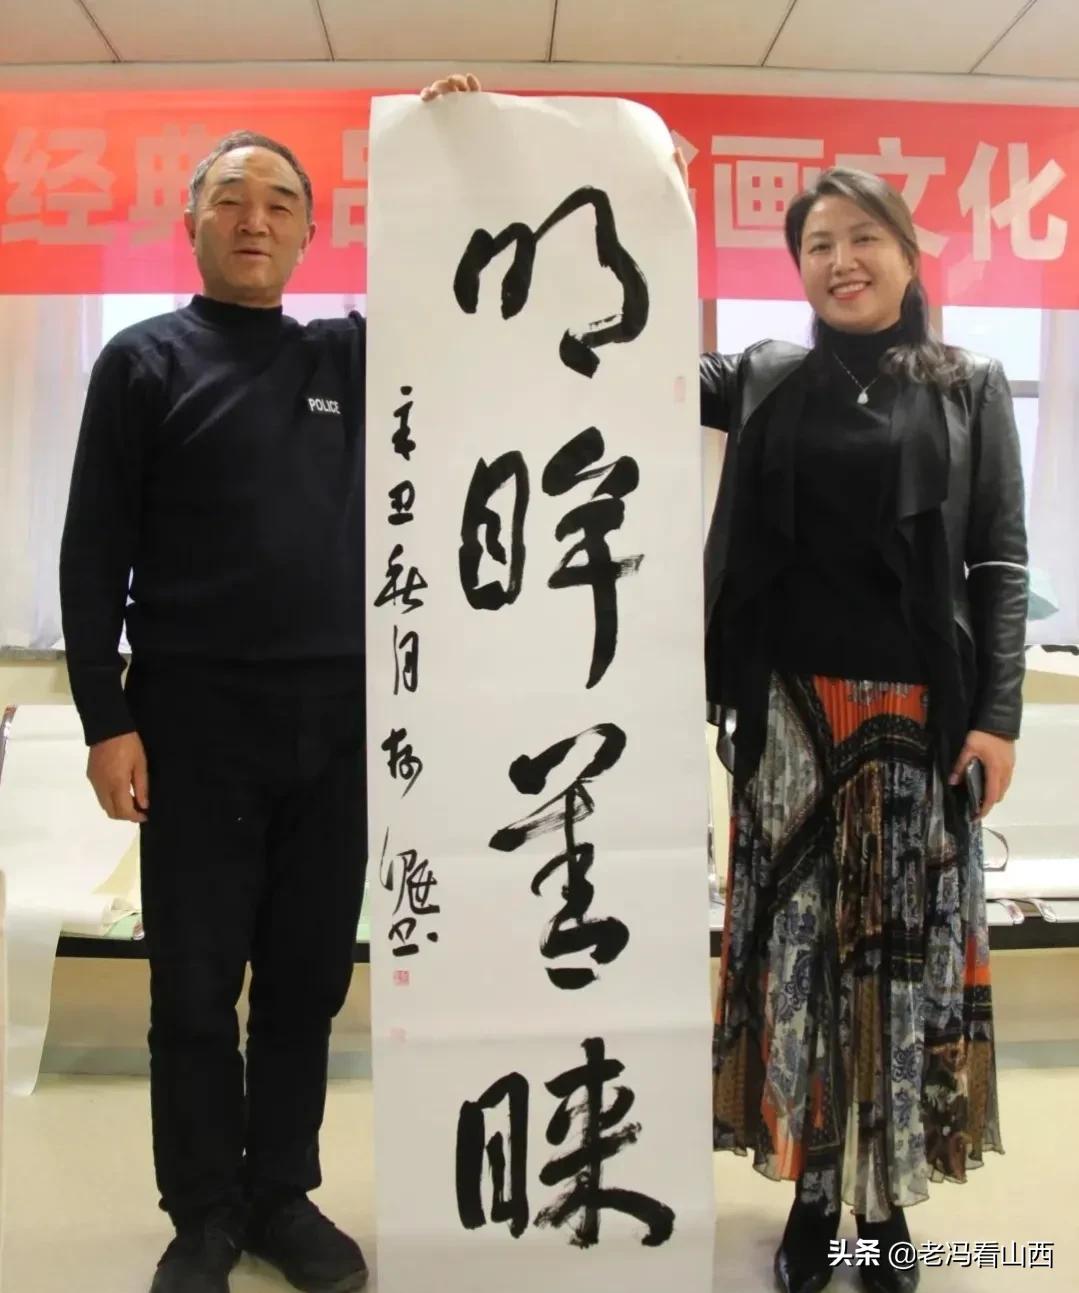 经典 品 书画文化
POLICE
明眸善睐
辛丑秋月
头条 @老冯看山西